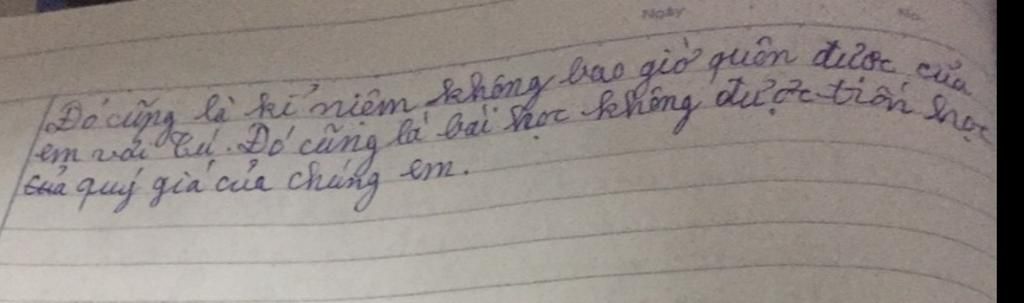 Ngày
No.
Đó cũng là kỉ niệm không bao giờ quên được của
em với Tú. Đó cũng là bài học không được tiền học
quý giá của chúng em.